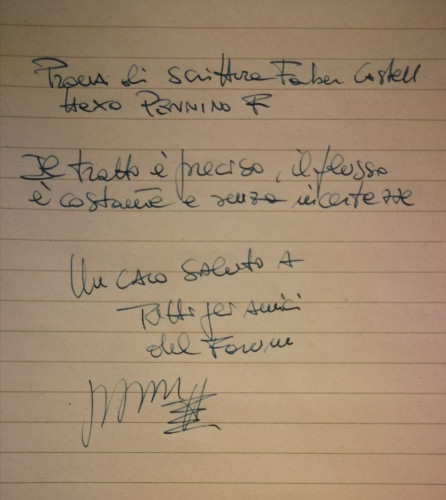 Prova di scrittura Faber Castell
Hexo PENNINO F
Il tratto è preciso, il flusso
è costante e senza incertezze
Un caro saluto a
Tutti gli amici
del Forum